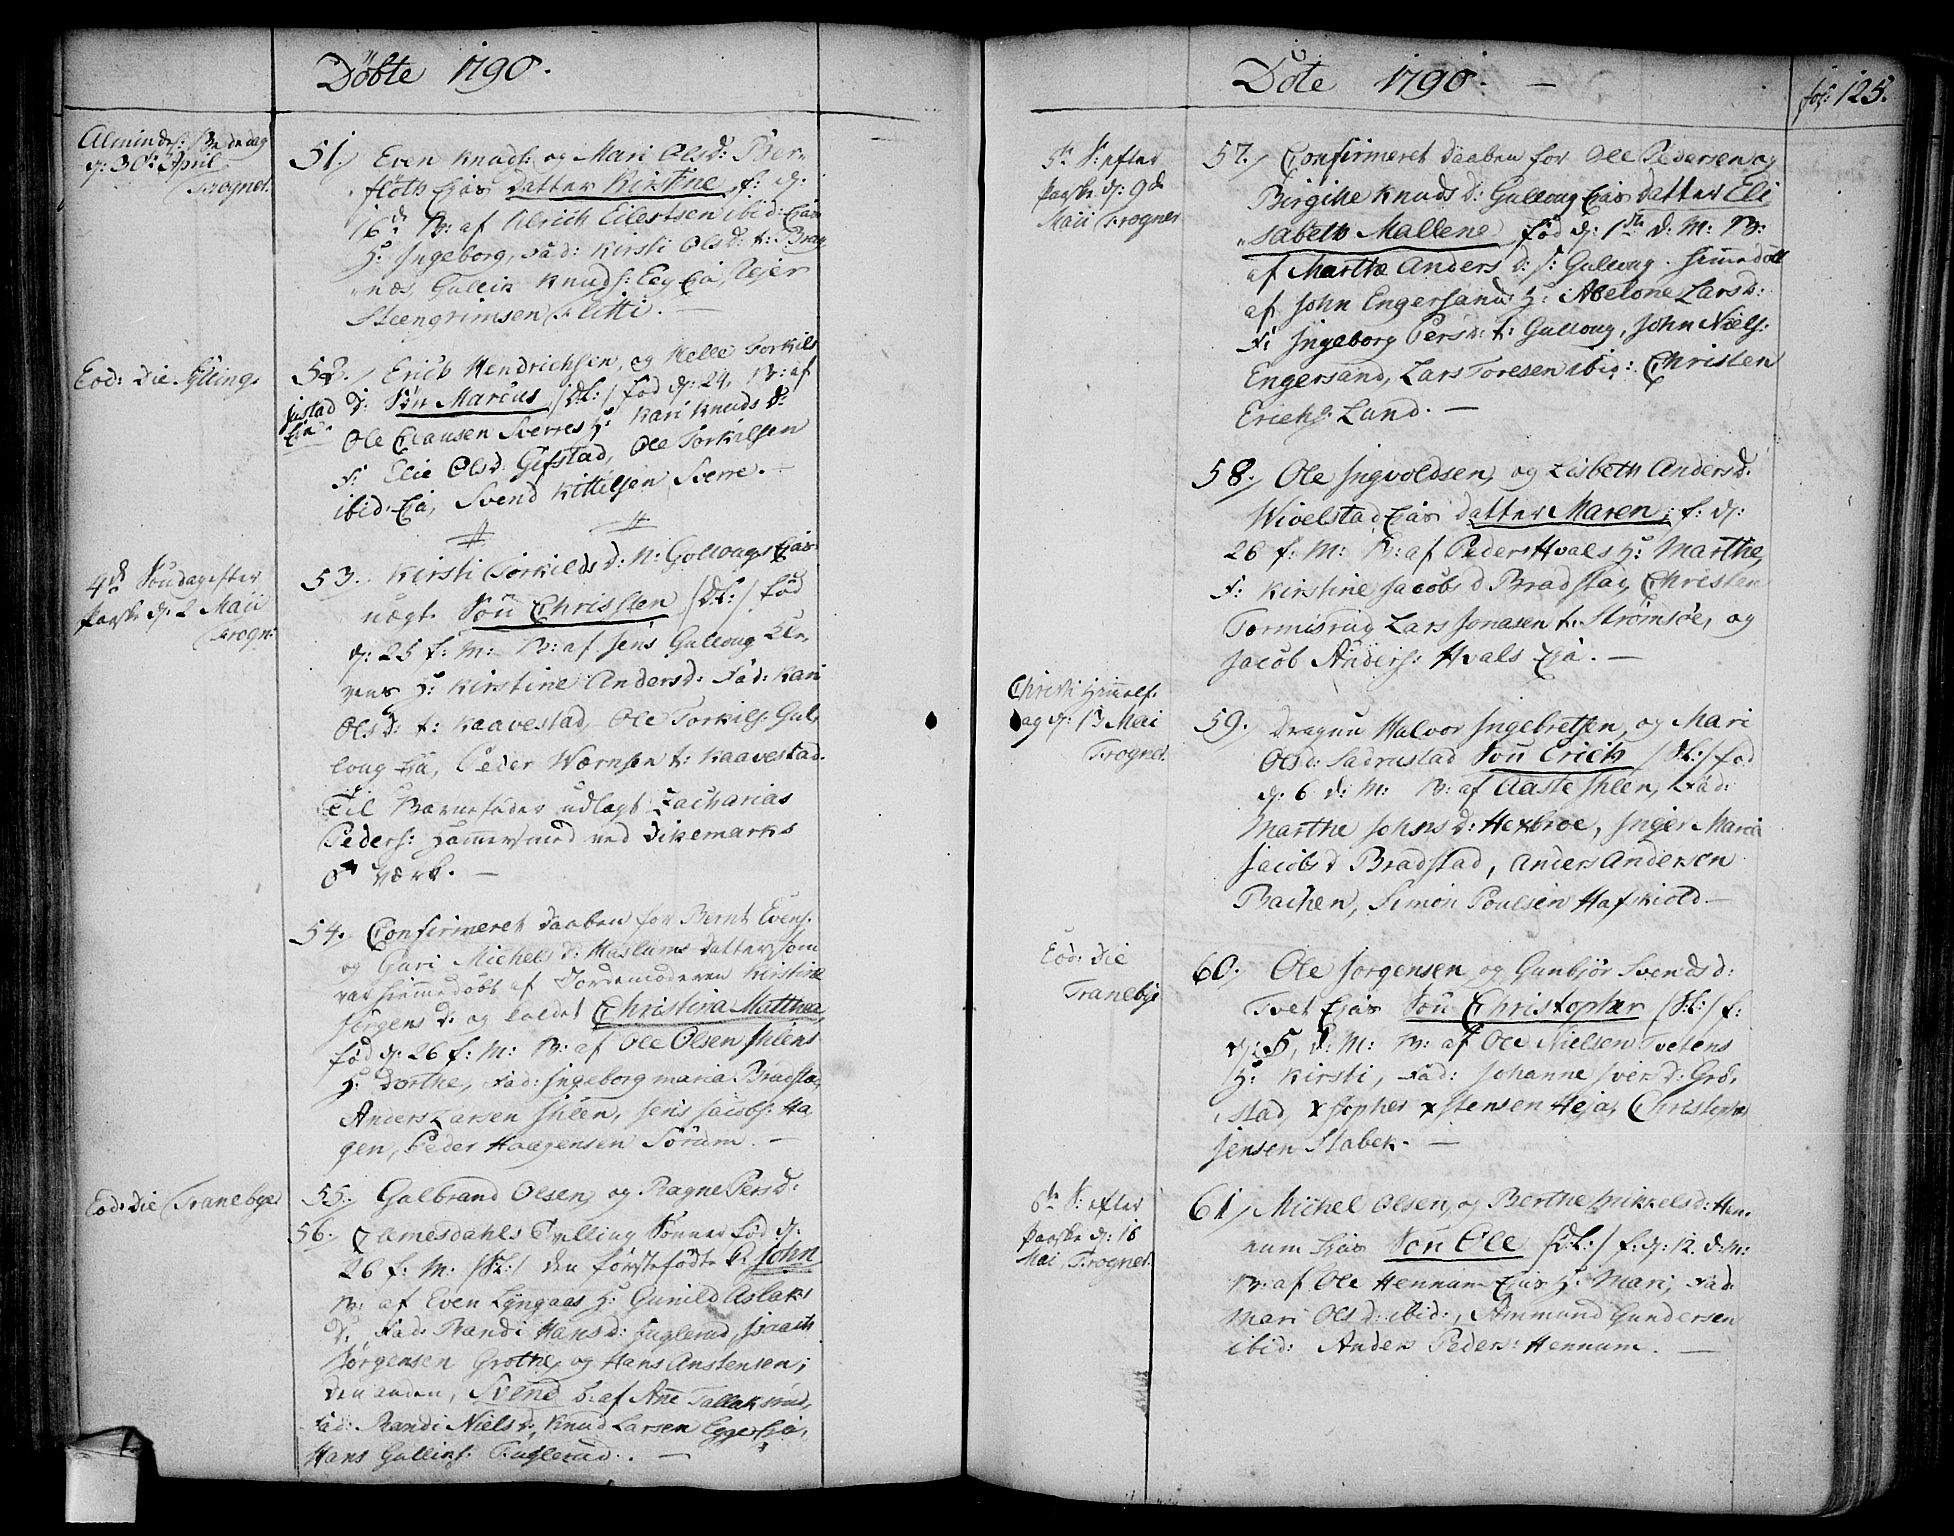 Døbte 1790.
Almindel: Bededag
d: 30te April
Frogner.
51. Even Knuds: og Mari Olsd: Ber-
fløth Ejas datter Kirstne f: d:
16d B: af Alrich Eilestsen ibid: Ejas
H: Ingeborg, Fad: Kirsti Olsd: t: Brag
næs, Gullik Knuds: Eeg Eja, Rejer
Steengrimsen Flitti.
Eod: Die Sylling.
52. Erich Hendrichsen, og Helle Torkils
d: Søn Marcus /Sk:/ fød d: 24, B: af
Ole Clausen Sverres H: Kari Knuds d:
F: Elie Olsd: Gifstad, Ole Torkilsen
ibid: Eja, Svend Kittilsen Sverre.
4de Søndag efter
Paaske d: 2 Maii
Frogn:
53. Kirsti Torkilds d: N: Gollougs Ejas
uægt. Søn Christen /Sk:/ fød
d: 25 f: M: B: af Jens Gulloug
H: Kirstine Andersd: Fad: Kari
Olsd: t: Kaavestad, Ole Torkils: Gul-
loug Eja, Peder Wærnsen t: Kaavestad.
Til Barnefader udlagt Zacharias
Peders: Hammersmed ved Dikemarks
værk.
54. Confirmeret daaben for Bernt Evens:
og Guri Michels d: Haslums datter, som
var hiemmedøbt af Jordemoderen Kirstine
Jørgens d: og kaldet Christina Matthea,
fød d: 26 f: M: B: af Ole Olsen Ihlens
H: Dorthe, Fad: Ingeborg Maria Bradstad,
Anders Larsen Ihlen, Jens Jacobs: Ha
gen, Peder Haagensen Sørum.
Eod: Die Tranebye
55. Gulbrand Olsen, og Ragne Persd:
56. Tvilling Sønner fød d:
26 f: M: /Sk:/ den førstefødte John
B: af Even Lyngaas H: Gunild Aslaks
d: Fad: Randi Hansd: Fuglerud, Isaach
Jørgensen Grothe, og Hans Anstensen;
den anden, Svend b: af Anne Tallaksrud,
Fad: Randi Niels d: Knud Larsen Egge Eja,
Hans Gulliks: Fuglerud.
Døte 1790.
fol: 125.
5te S: efter
Paaske d: 9de
Maii Frogner
57. Confirmeret daaben for Ole Pedersen og
Birgitte Knuds d: Gulloug Ejas datter Eli
sabeth Mallene fød d: 1ste d: M: B:
af Marthe Anders d: S: Gulloug. hiemedøbt
af John Engersands H: Abelone Lars d:
F: Ingeborg Persd: t: Gulloug, John Niels:
Engersand, Lars Toresen ibid: Christen
Erichs: Lund.
58. Ole Ingvoldsen, og Lisbeth Andersd.
Wivelstad Ejas datter Maren, f: d:
26 f: M: B: af Peders Hvals H: Marthe,
F: Kirstine Jacobs d Bradstad, Christen
Tormisrug Lars Jonasen t: Strømsøe, og
Jacob Anders: Hvals Eja.
Christi Himelf:
dag d: 13 Mai
Frogner.
59. Dragun Halvor Ingebretsen, og Mari
Olsd: Sadrustad Søn Erich /Sk:/ fød
d: 6 d: M: B: af Aaste Ihlen, Fad:
Marthe Johns d: Hexbroe, Inger Maria
Jacobs d Bradstad, Anders Andersen
Bachen, Simon Poulsen Hafskiold.
Eod: Die
Tranebye
60. Ole Jorgensen og Gunbjør Svends d:
Tvet Ejas Søn Christopher /Sk:/ f:
d: 5, d: M: B: af Ole Nielsen Tvetens
H: Kirsti, Fad: Johanne Iver d: Grø-
stad, Xstopher Xstensen Heja, Christopher
Jensen Stabek.
6te S: efter
Paaske d: 16
Mai Frogner.
61. Michel Olsen, og Berthe Mikkelsd: Hen-
num Ejas Søn Ole /Sk:/ f: d: 12. d: M:
B: af Ole Hennum Ejas H: Mari, Fad:
Mari Ols d: ibid:, Ammund Gundersen
ibid: Anders Peders: Hennum.